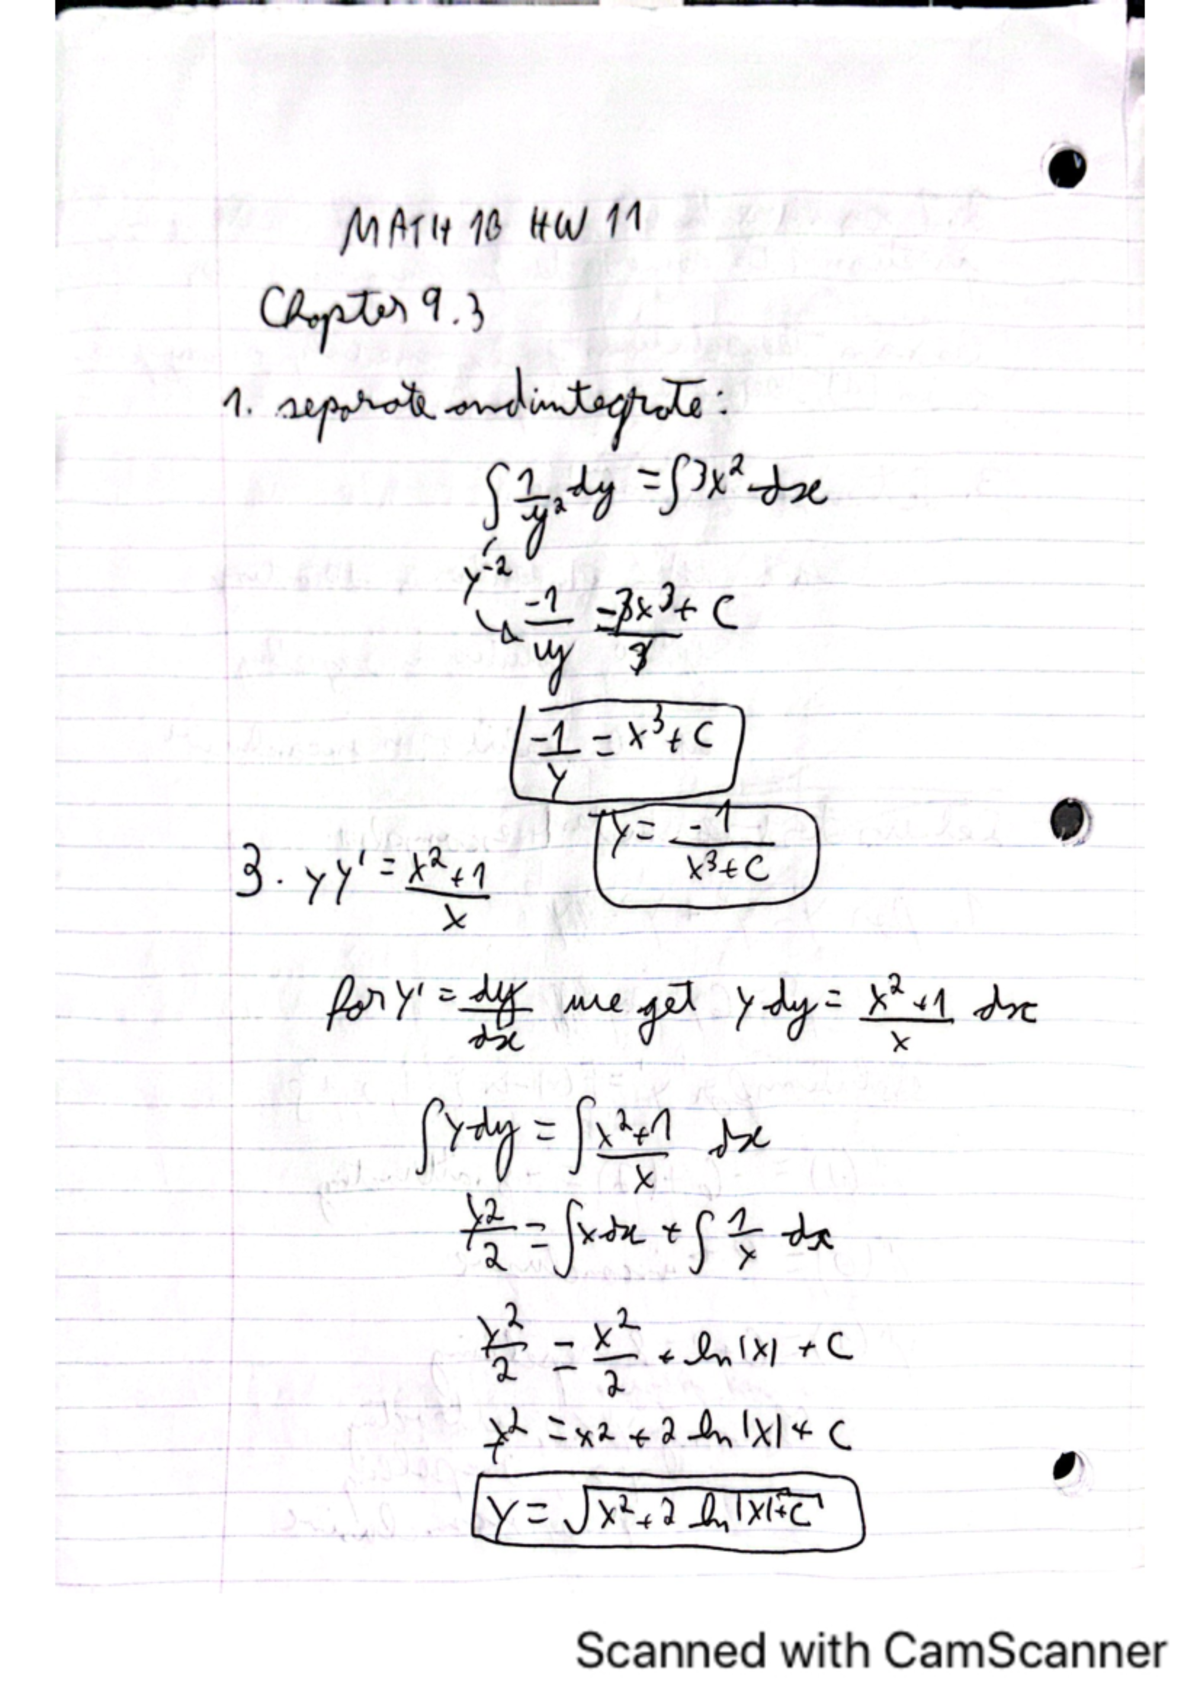 MATH 1B HW 11
Chapter 9.3
1. separate and integrate:
∫ 1/y² dy = ∫ 3x² dx
y⁻²
-1/y = 3x³/3 + C
-1/y = x³ + C
y = -1/(x³ + C)
3. yy' = (x² + 1)/x
for y' = dy/dx we get y dy = (x² + 1)/x dx
∫ y dy = ∫ (x² + 1)/x dx
y²/2 = ∫ x dx + ∫ 1/x dx
y²/2 = x²/2 + ln|x| + C
y² = x² + 2 ln|x| + C
y = √(x² + 2 ln|x| + C)
Scanned with CamScanner